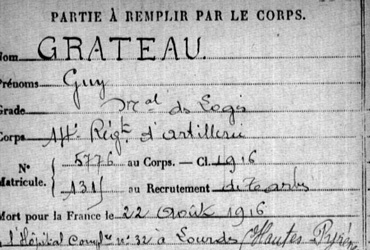 PARTIE À REMPLIR PAR LE CORPS.
Nom GRATEAU.
Prénoms Guy
Grade Mal des Logis
Corps 14e Régt d'artillerie
N° 5776 au Corps. — Cl. 1916
Matricule. 131 au Recrutement de Tarbes
Mort pour la France le 22 Août 1916
à l'Hôpital Compre n° 32 à Lourdes (Hautes-Pyréné